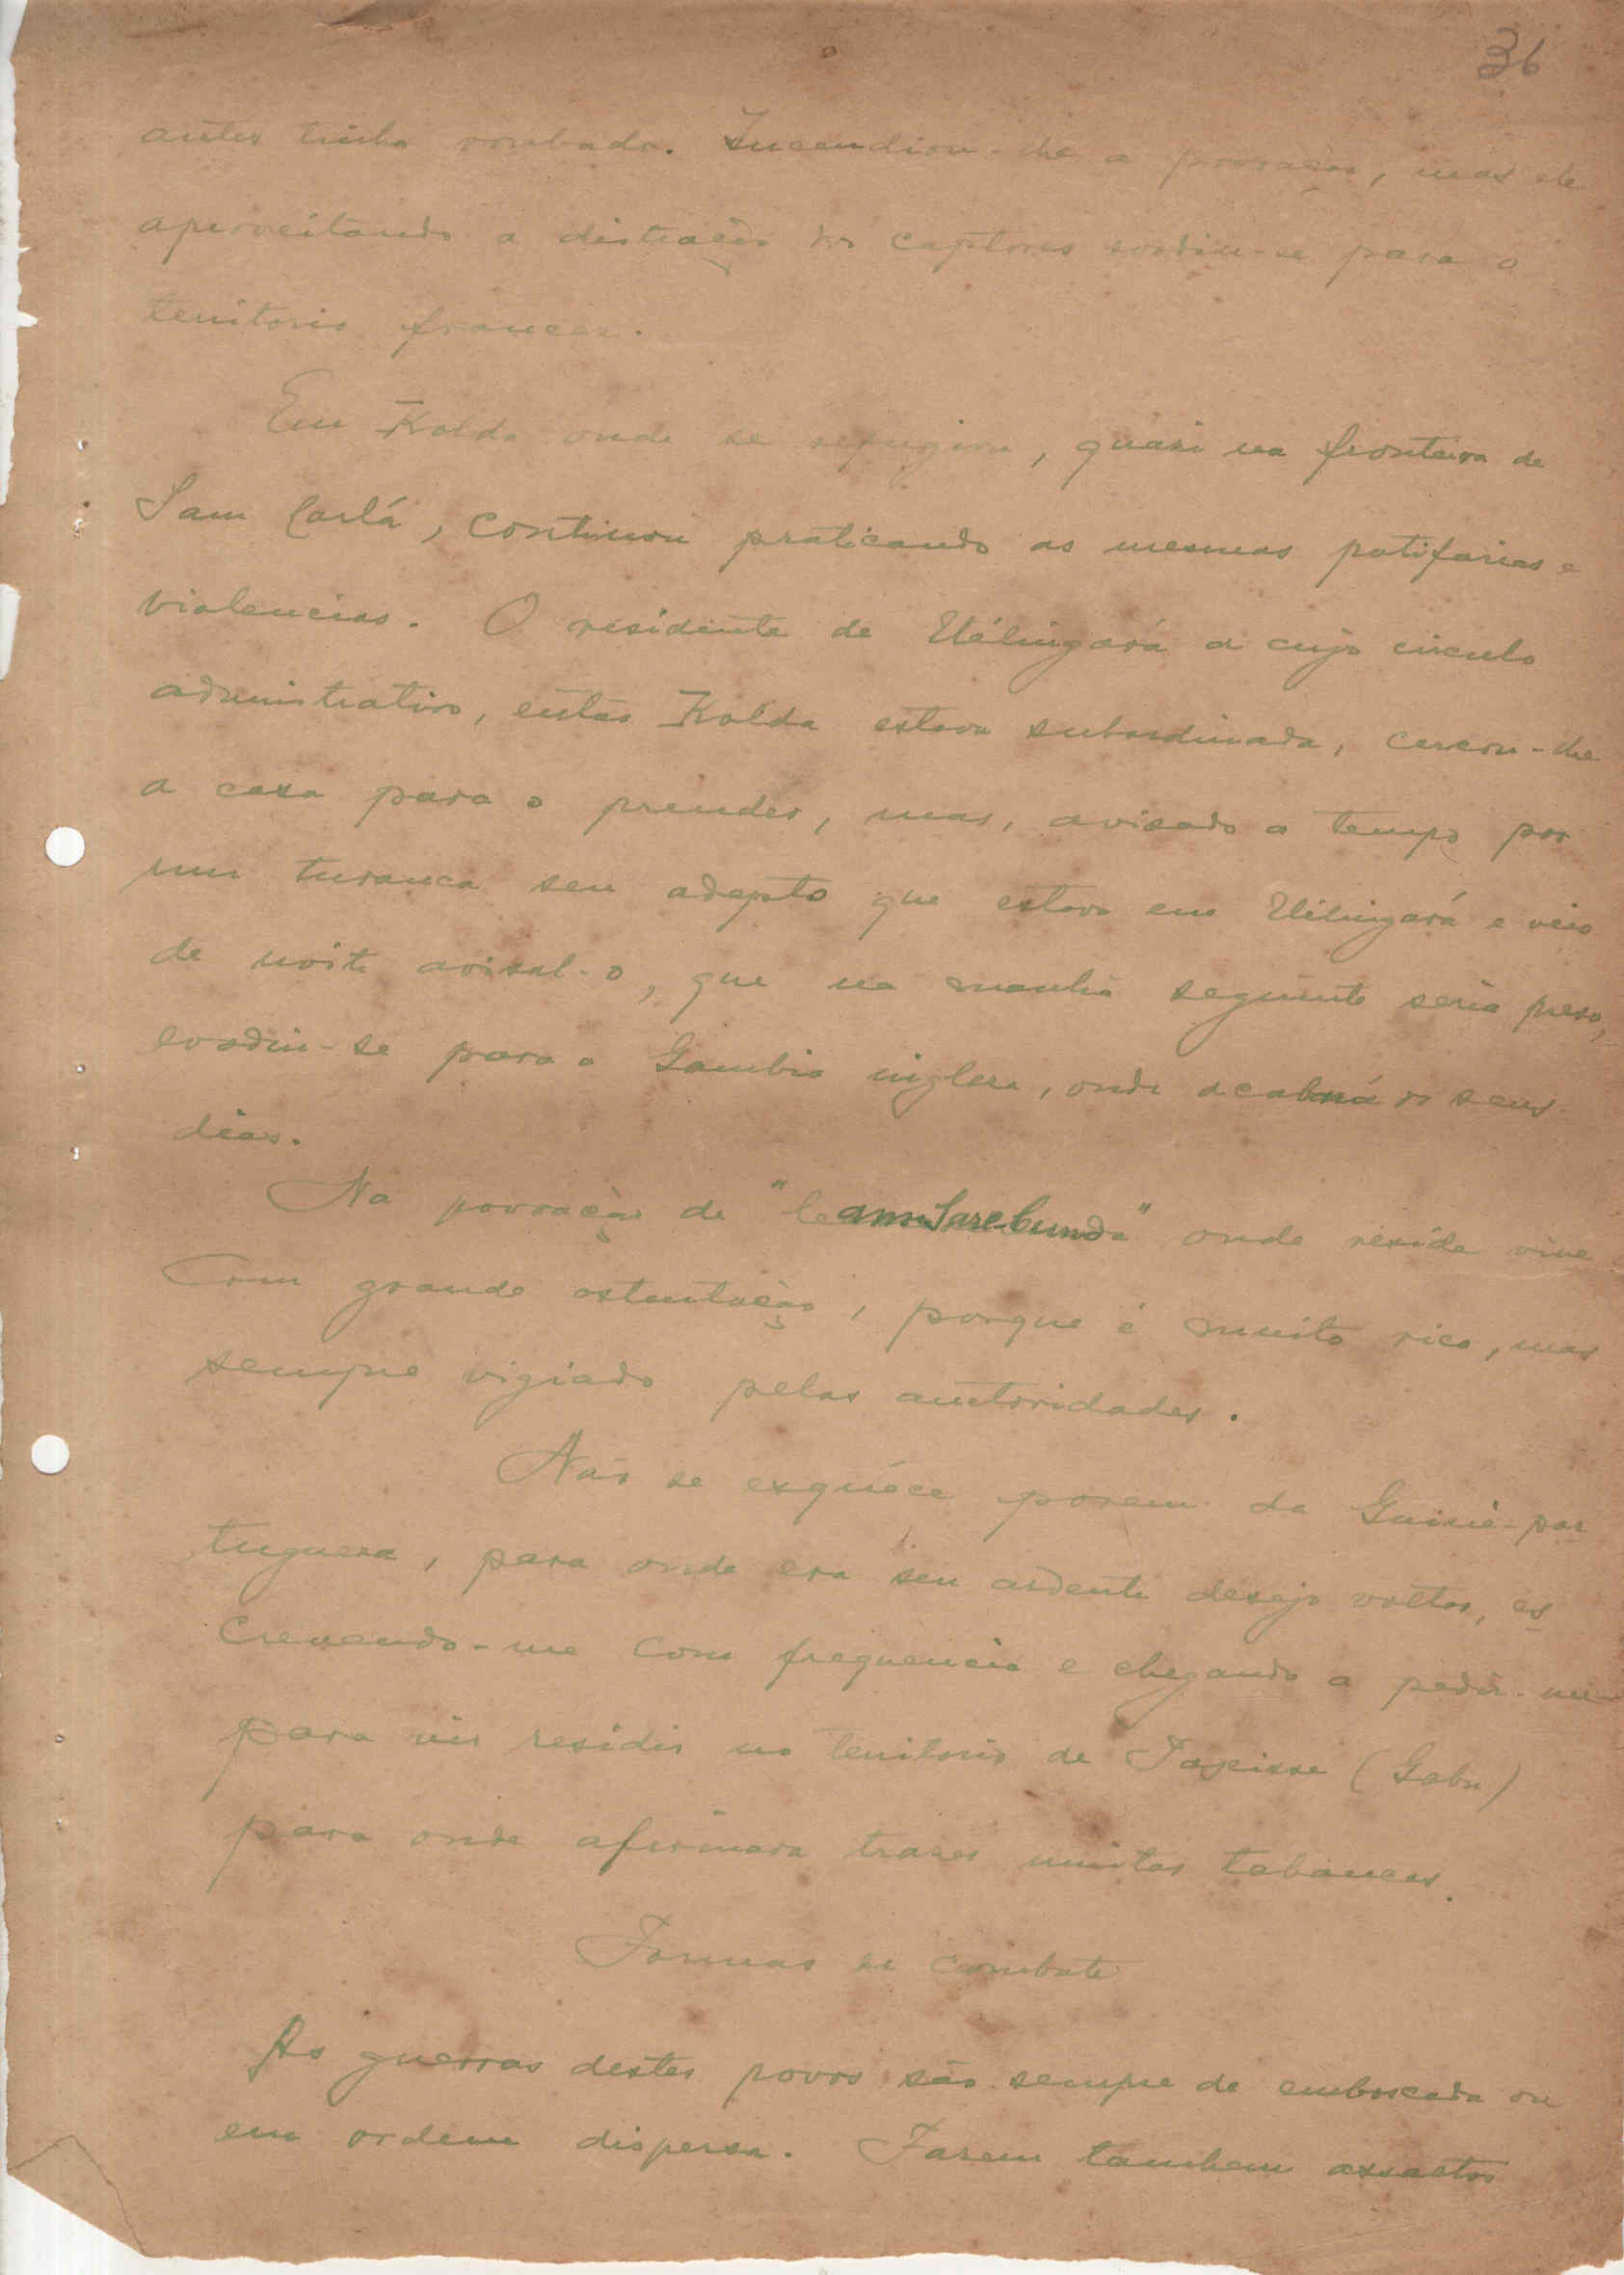 36
antes tinha roubado. Incendiou-lhe a povoação, mas ele
aproveitando a distração dos captores evadiu-se para o
territorio francez.
Em Kolda onde se refugiou, quasi na fronteira de
Sam Corlá, continuou praticando as mesmas patifarias e
violencias. O residente de Uélingará a cujo circulo
administrativo, então Kolda estava subordinada, cercou-lhe
a casa para o prender, mas, avisado a tempo por
um turanca seu adepto que estava em Uélingará e veio
de noite avisal-o, que na manhã seguinte seria preso,
evadiu-se para a Gambia ingleza, onde acabará os seus
dias.
Na povoação de " " onde reside vive
com grande ostentação, porque é muito rico, mas
sempre vigiado pelas auctoridades.
Não se esquéce porem da Guiné-por
tugueza, para onde era seu ardente desejo voltar, es
crevendo-me com frequencia e chegando a pedir-me
para vir residir no territorio de (Gabu)
para onde afirmara trazer muitas tabancas.
Formas de combate
As guerras destes povos são sempre de emboscada ou
em ordem dispersa. Fazem tambem assaltos